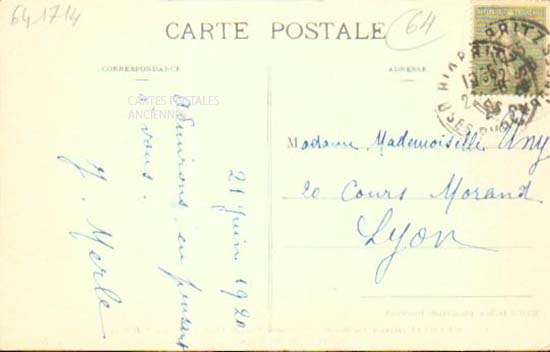 641714
64
CARTE POSTALE
CORRESPONDANCE
ADRESSE
CARTES POSTALES
ANCIENNES
21 Juin 1920
en pensant
à vous.
J. Merle
Madame Mademoiselle Any
20 Cours Morand
Lyon